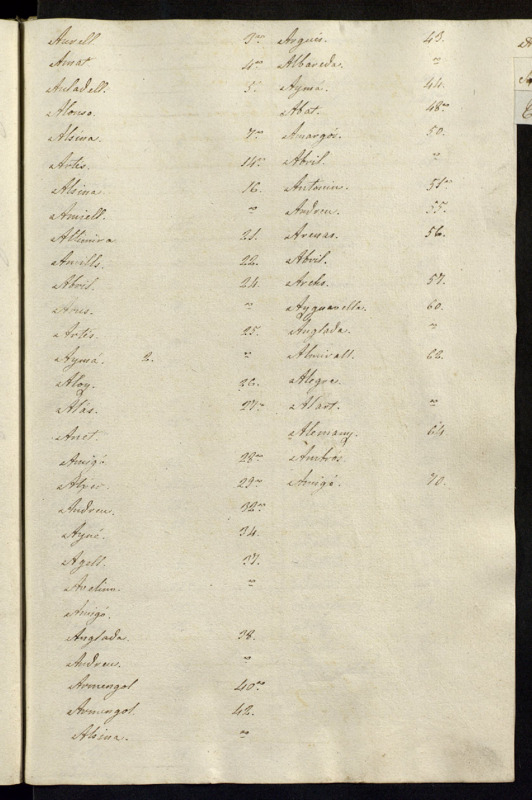 Aurell 3.vo
Amat 4.vo
Auladell. 5.
Alonso.
Alsina. 7.vo
Artés. 14.vo
Alsina. 16.
Amiell. vo
Altimira 21.
Amills. 22.
Abril. 24.
vo
Artés. 25.
Aymá. 2. vo
Aloy. 26.
Alás. 27.vo
Anet.
Amigó. 28.vo
29.vo
Andreu. 32.vo
Ayné. 34.
Agell. 37.
Avelino. vo
Amigó.
Anglada. 38.
Andreu. vo
Armengol 40.vo
Armengol. 42.
Alsina. vo
Argués. 43.
Albareda. vo
Ayma. 44.
Abat. 48.vo
Amargós. 50.
Abril. vo
Antonin. 51.vo
Andreu. 55.
Arenas. 56.
Abril.
Archs. 57.
Ayguavella. 60.
Anglada. vo
Almirall. 62.
Alegre.
Alart. vo
Alemany. 64
Ambrós.
Amigó. 70.